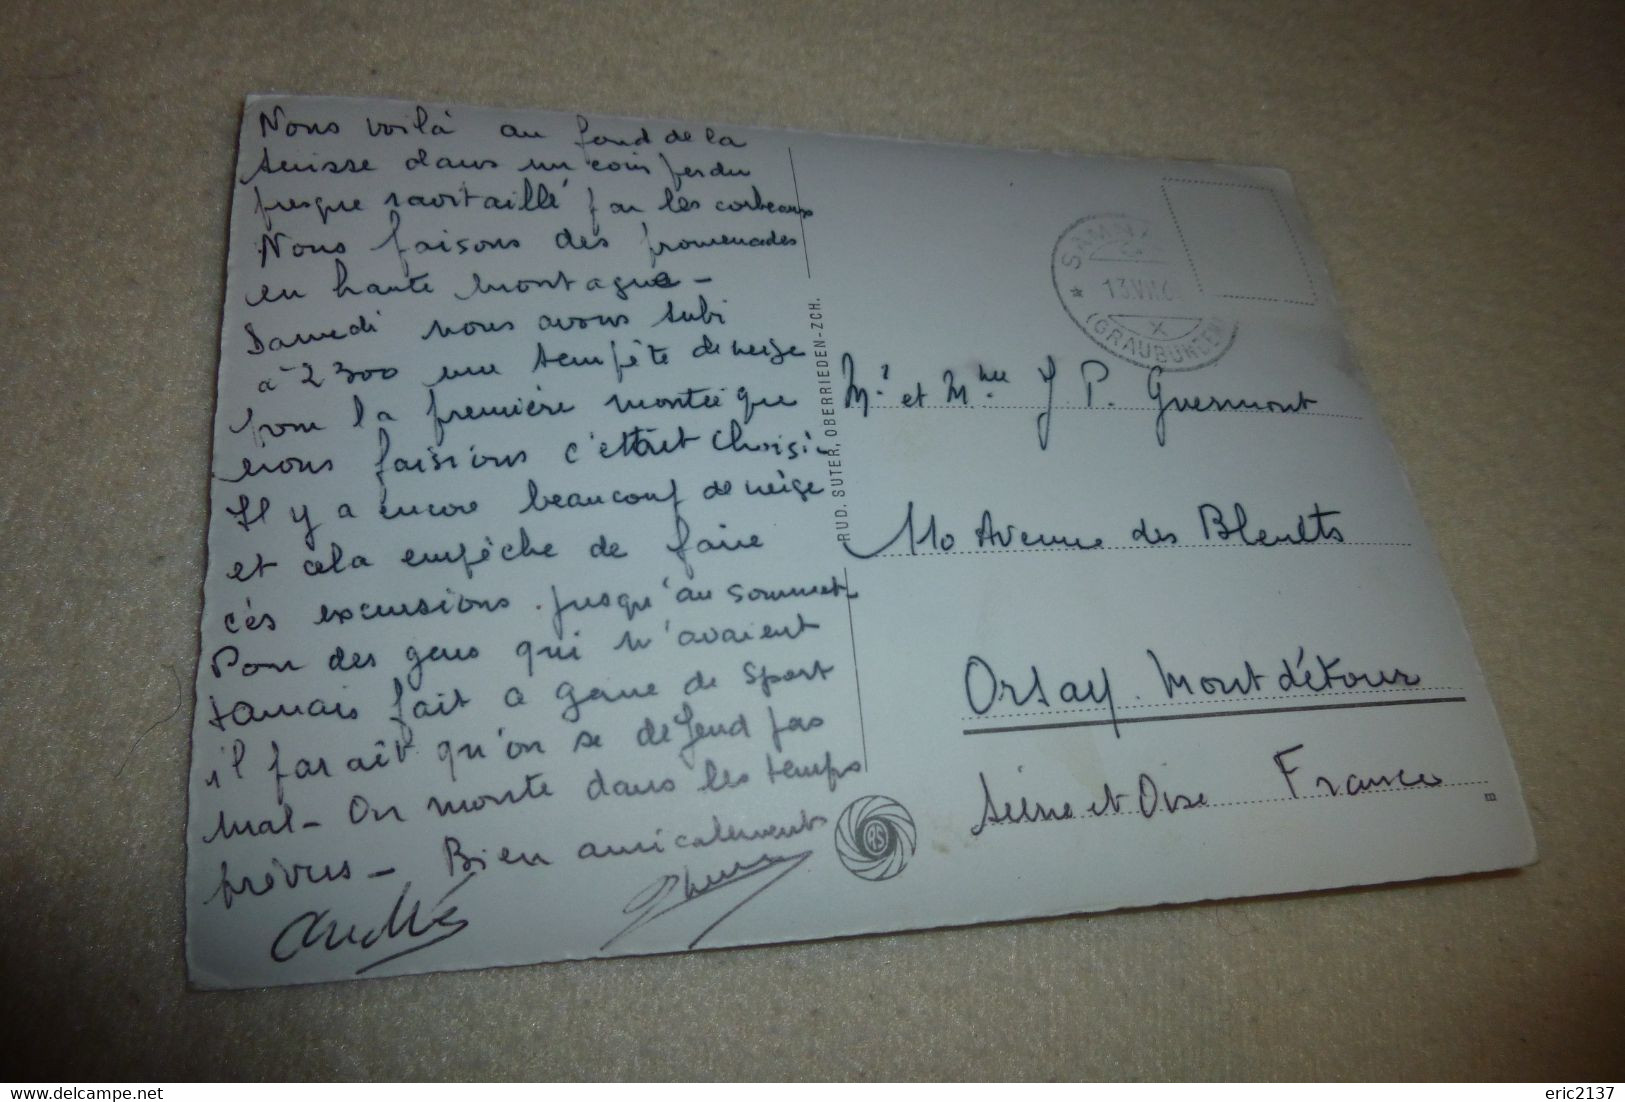 Nous voilà au fond de la
suisse dans un coin perdu
presque ravitaillé par les corbeaux
Nous faisons des promenades
en haute montagne -
Samedi nous avons subi
à 2300 une tempête de neige
pour la première montée que
nous faisions c'était choisi.
Il y a encore beaucoup de neige
et cela empêche de faire
ces excursions jusqu'au sommet
Pour des gens qui n'avaient
jamais fait ce genre de sport
il paraît qu'on se défend pas
mal - On monte dans les temps
prévus - Bien amicalement
Andrée
RUD. SUTER, OBERRIEDEN-ZCH.
RS
* SAMN
13.VII.6
X
(GRAUBÜNDEN)
Mr et Mme J P. Guermont
110 Avenue des Bleuets
Orsay. Mont détour
Seine et Oise France
www.delcampe.net
eric2137